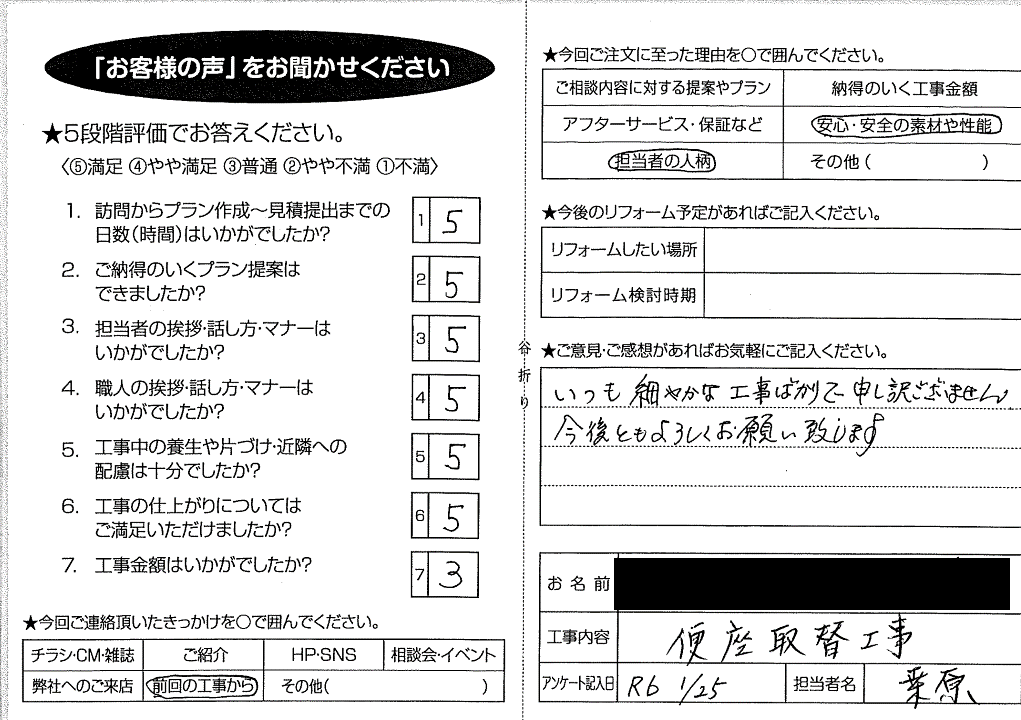 「お客様の声」をお聞かせください
★5段階評価でお答えください。
〈⑤満足 ④やや満足 ③普通 ②やや不満 ①不満〉
1. 訪問からプラン作成～見積提出までの
日数(時間)はいかがでしたか?
1 5
2. ご納得のいくプラン提案は
できましたか?
2 5
3. 担当者の挨拶・話し方・マナーは
いかがでしたか?
3 5
4. 職人の挨拶・話し方・マナーは
いかがでしたか?
4 5
5. 工事中の養生や片づけ・近隣への
配慮は十分でしたか?
5 5
6. 工事の仕上がりについては
ご満足いただけましたか?
6 5
7. 工事金額はいかがでしたか?
7 3
★今回ご連絡頂いたきっかけを○で囲んでください。
チラシ・CM・雑誌 ご紹介 HP・SNS 相談会・イベント
弊社へのご来店 前回の工事から その他( )
谷折り
★今回ご注文に至った理由を○で囲んでください。
ご相談内容に対する提案やプラン 納得のいく工事金額
アフターサービス・保証など 安心・安全の素材や性能
担当者の人柄 その他( )
★今後のリフォーム予定があればご記入ください。
リフォームしたい場所
リフォーム検討時期
★ご意見・ご感想があればお気軽にご記入ください。
いつも細やかな工事ばかりで申し訳ございません
今後ともよろしくお願い致します
お名前
工事内容 便座取替工事
アンケート記入日 R6 1/25 担当者名 栗原